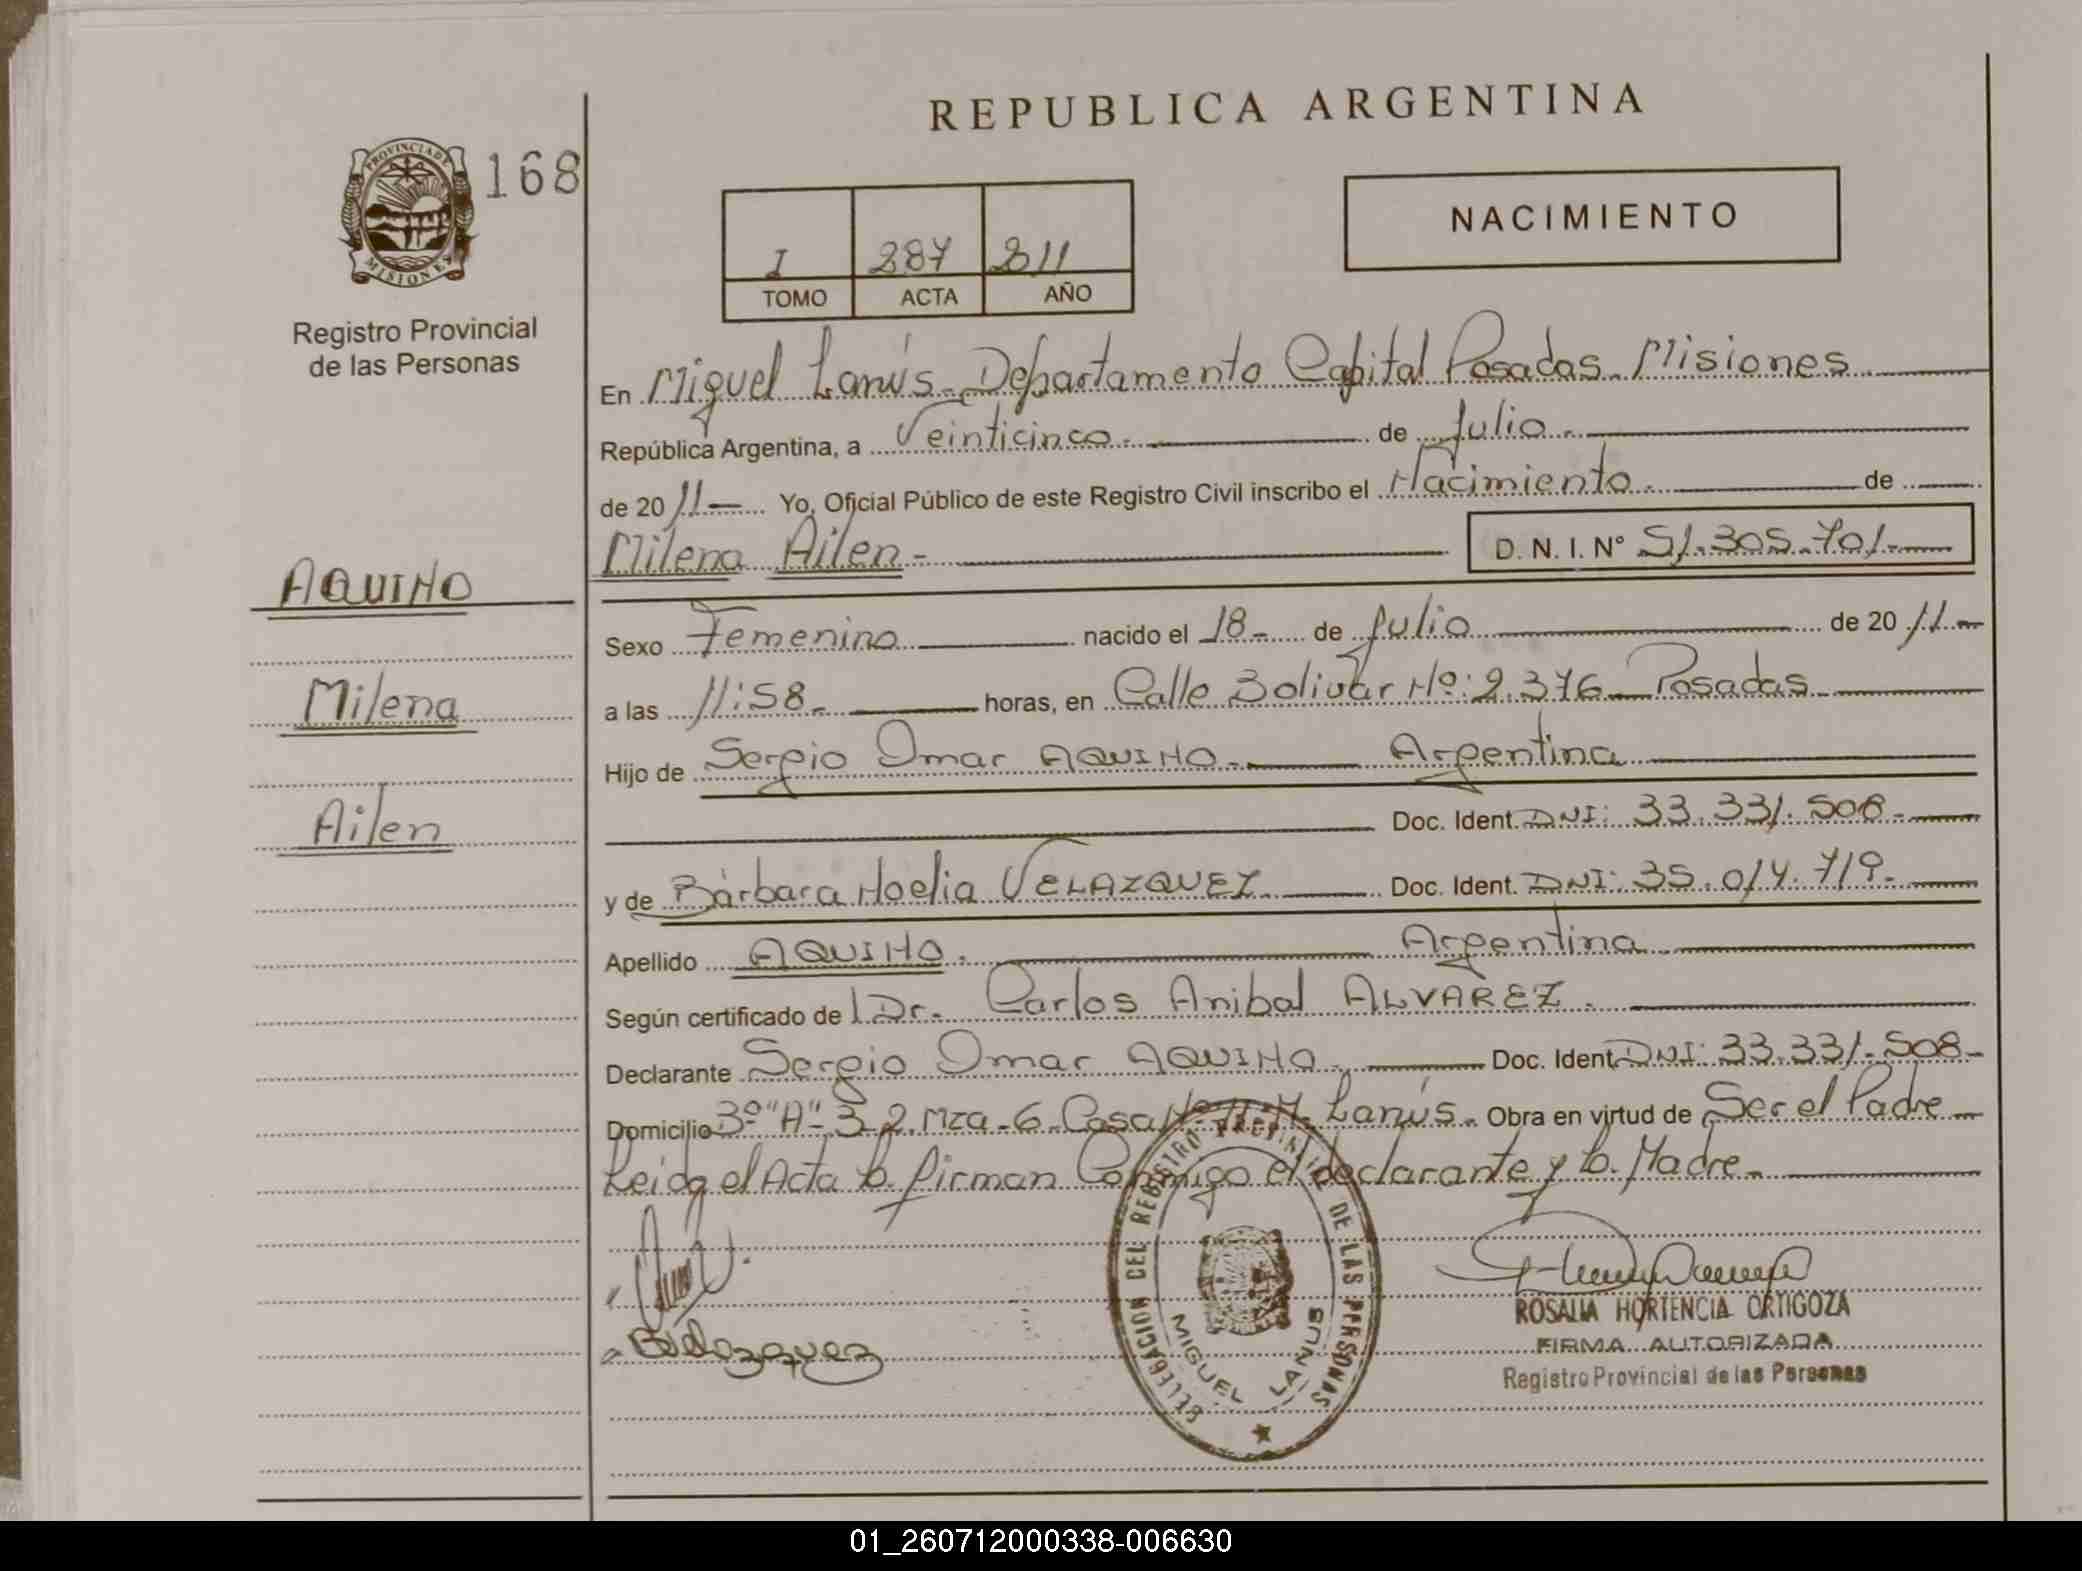 REPUBLICA ARGENTINA
PROVINCIA DE
MISIONES
168
Registro Provincial
de las Personas
I 287 2011
TOMO ACTA AÑO
NACIMIENTO
En Miguel Lanús - Departamento Capital Posadas - Misiones
República Argentina, a Veinticinco.- de Julio.-
de 2011- Yo, Oficial Público de este Registro Civil inscribo el Nacimiento.- de
Milena Ailen.- D. N. I. Nº 51.305.701.-
AQUINO
Milena
Ailen
Sexo Femenino nacido el 18- de Julio de 2011-
a las 11:58- horas, en Calle Bolivar Nº: 2.376 - Posadas
Hijo de Sergio Omar AQUINO.- Argentina
Doc. Ident. DNI: 33.331.508-
y de Bárbara Noelia VELAZQUEZ Doc. Ident. DNI: 35.014.719-
Apellido AQUINO. Argentina
Según certificado del Dr. Carlos Anibal ALVAREZ.
Declarante Sergio Omar AQUINO Doc. Ident. DNI: 33.331.508-
Domicilio 3º "A" 3 2. Mza - 6 - Casa Nº 11 - M. Lanús. Obra en virtud de Ser el Padre
Leida el Acta la firman Conmigo el declarante y la Madre
DELEGACION DEL REGISTRO PROVINCIAL DE LAS PERSONAS
MIGUEL LANUS
BVelazquez
ROSALIA HORTENCIA ORTIGOZA
FIRMA AUTORIZADA
Registro Provincial de las Personas
01_260712000338-006630